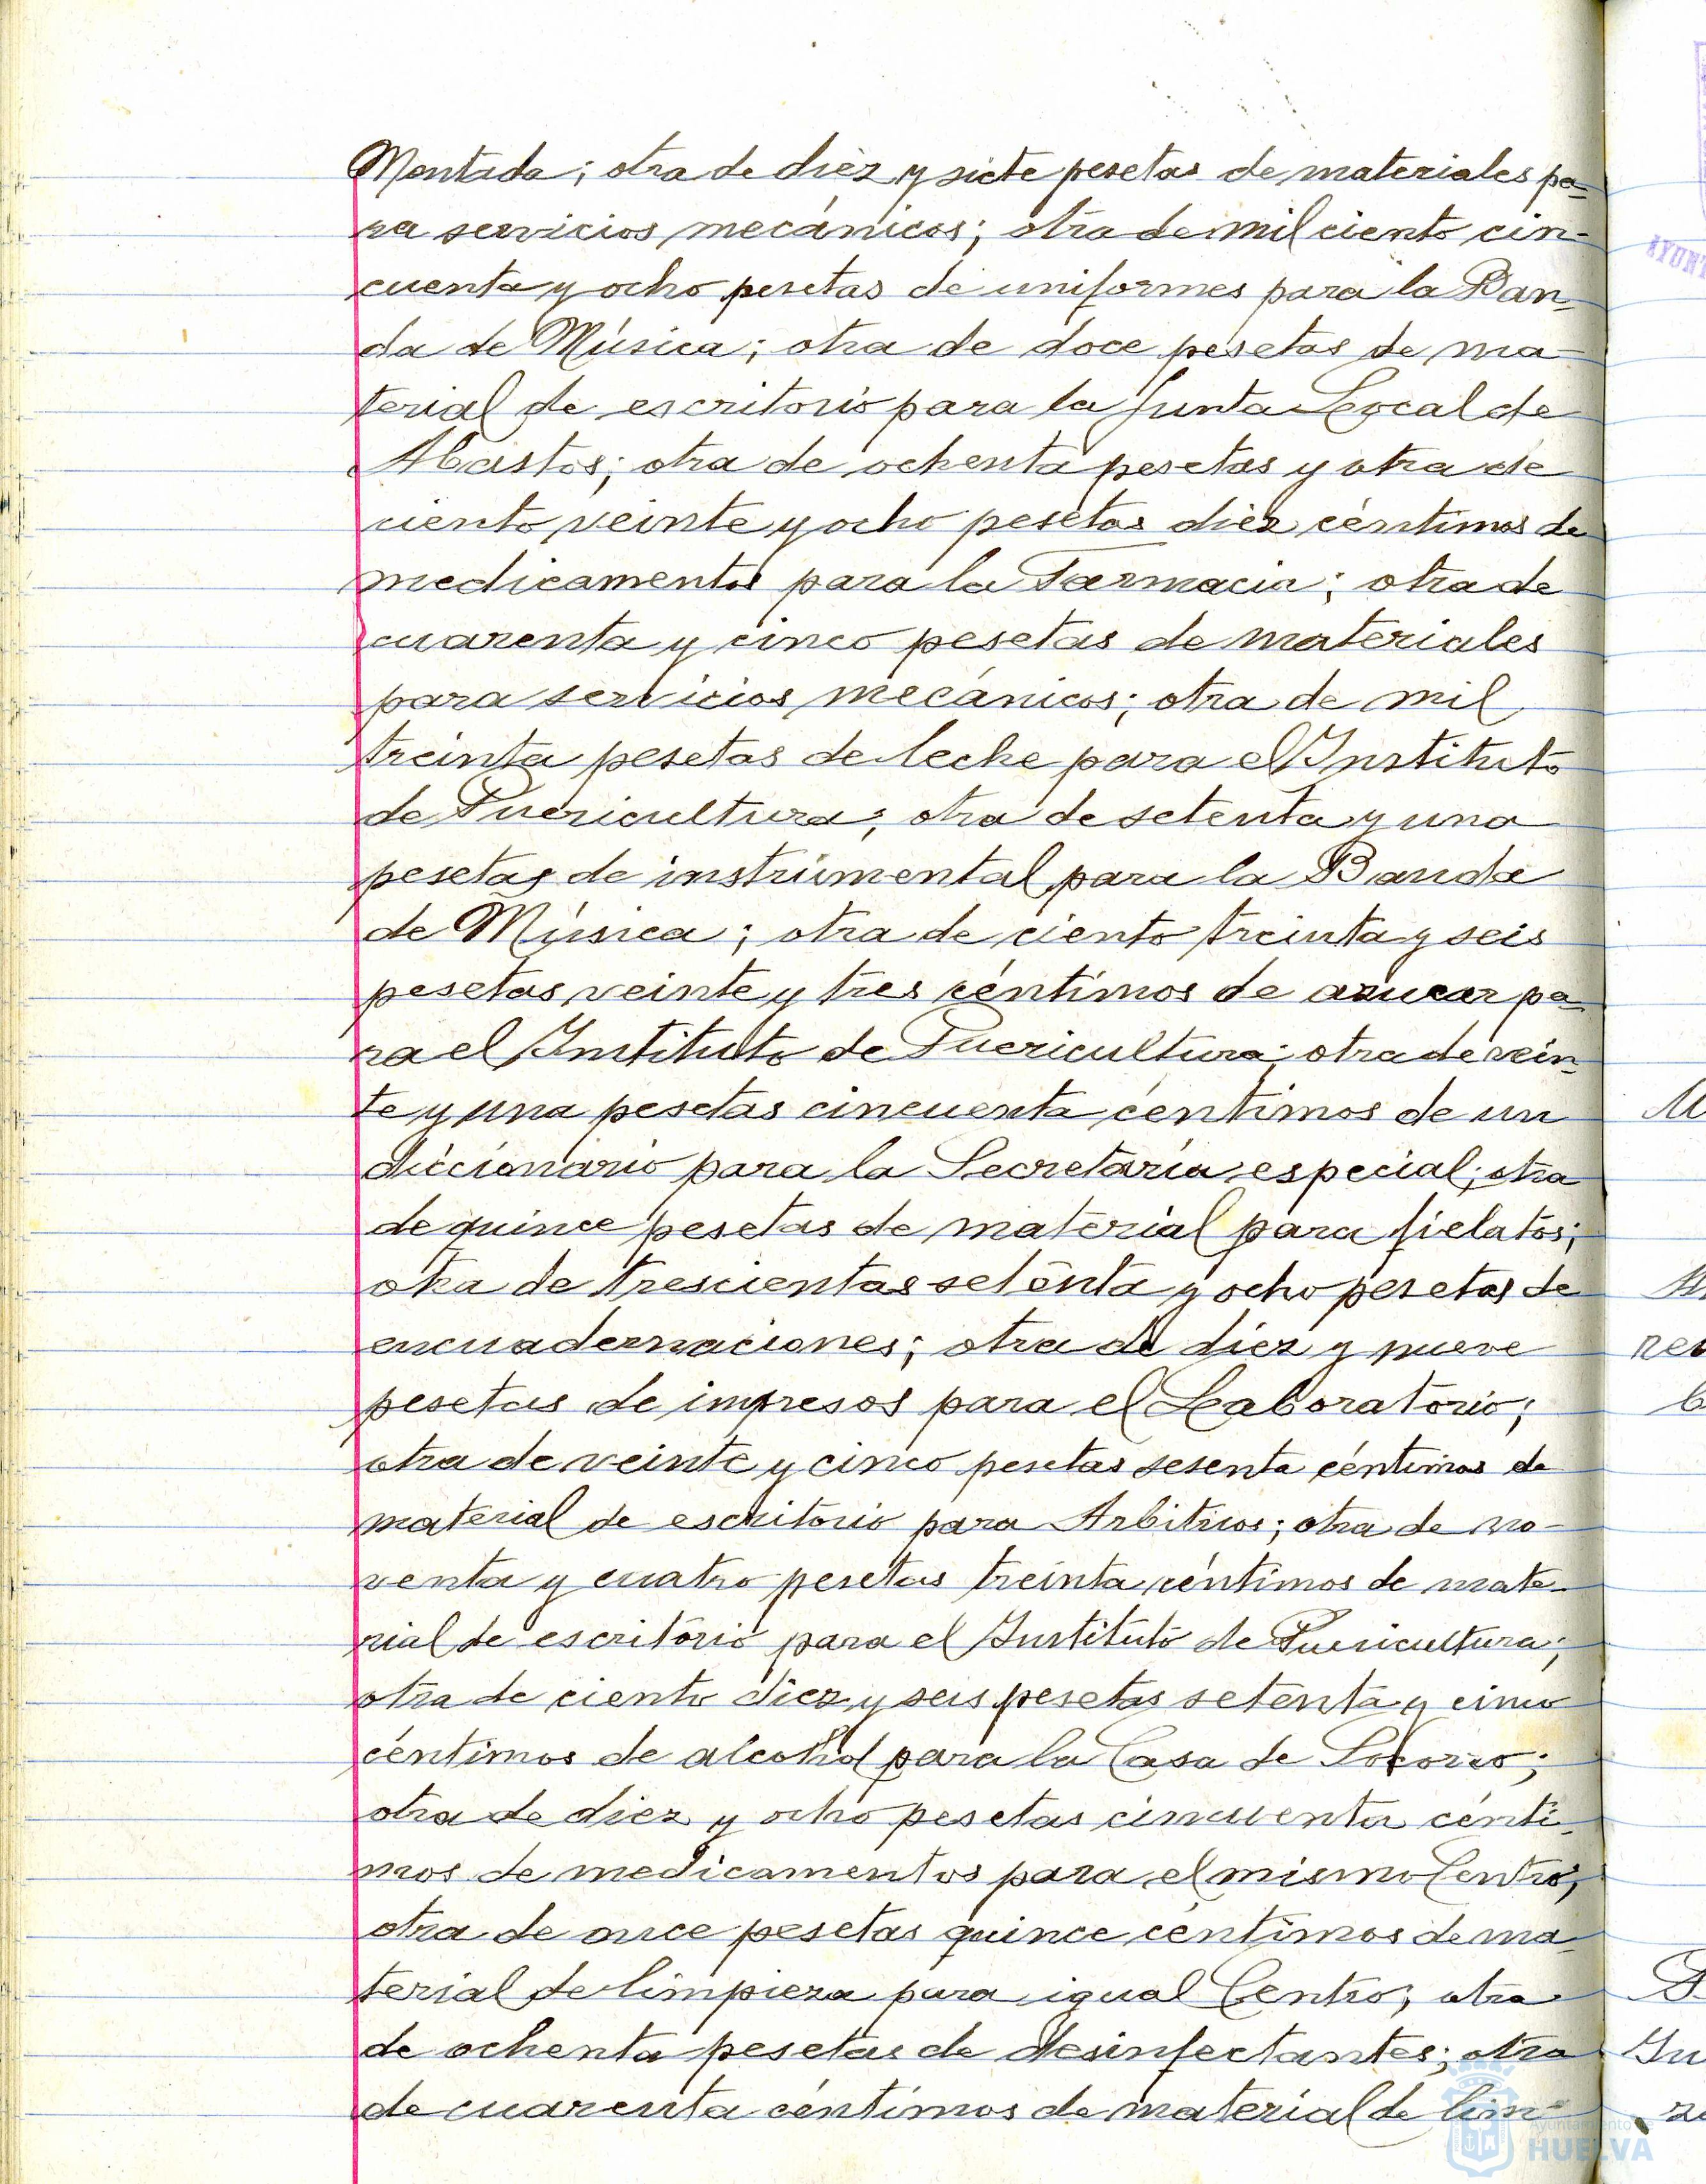 Montada; otra de diez y siete pesetas de materiales pa-
ra servicios mecánicos; otra de mil ciento cin-
cuenta y ocho pesetas de uniformes para la Ban-
da de Música; otra de doce pesetas de ma-
terial de escritorio para la Junta Local de
Abastos; otra de ochenta pesetas y otra de
ciento veinte y ocho pesetas diez céntimos de
medicamentos para la Farmacia; otra de
cuarenta y cinco pesetas de materiales
para servicios mecánicos; otra de mil
treinta pesetas de leche para el Instituto
de Puericultura; otra de setenta y una
pesetas de instrumental para la Banda
de Música; otra de ciento treinta y seis
pesetas veinte y tres céntimos de azucar pa-
ra el Instituto de Puericultura; otra de vein-
te y una pesetas cincuenta céntimos de un
diccionario para la Secretaría especial; otra
de quince pesetas de material para fielatos;
otra de trescientas setenta y ocho pesetas de
encuadernaciones; otra de diez y nueve
pesetas de impresos para el Laboratorio;
otra de veinte y cinco pesetas sesenta céntimos de
material de escritorio para Arbitrios; otra de no-
venta y cuatro pesetas treinta céntimos de mate-
rial de escritorio para el Instituto de Puericultura;
otra de ciento diez y seis pesetas setenta y cinco
céntimos de alcohol para la Casa de Socorro;
otra de diez y ocho pesetas cincuenta cénti-
mos de medicamentos para el mismo Centro;
otra de once pesetas quince céntimos de ma-
terial de limpieza para igual Centro; otra
de ochenta pesetas de desinfectantes; otra
de cuarenta céntimos de material de lim-
Ayuntamiento
HUELVA